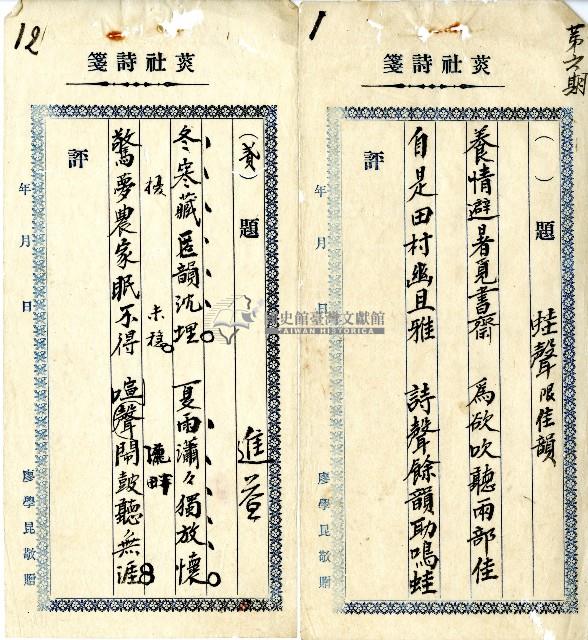 第六期
1
荑社詩箋
（ ）題 蛙聲 限佳韻
養情避暑覓書齋 為欲吹聽兩部佳
自是田村幽且雅 詩聲餘韻助鳴蛙
評
年 月 日
廖學昆敬贈
12
荑社詩箋
（貳）題 進益
冬寒藏匿韻沈埋 夏雨瀟々獨放懷
擾 未穩 隴畔
驚夢農家眠不得 喧聲鬧鼓聽無涯
8
評
年 月 日
廖學昆敬贈
史館臺灣文獻館
TAIWAN HISTORICA